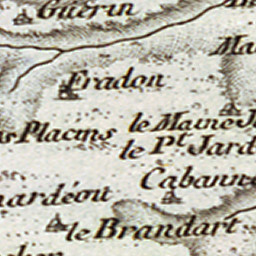 Guérin
Fradon
Placins
le Maine
le Pt Jard
Cabann
ardéou
le Brandart